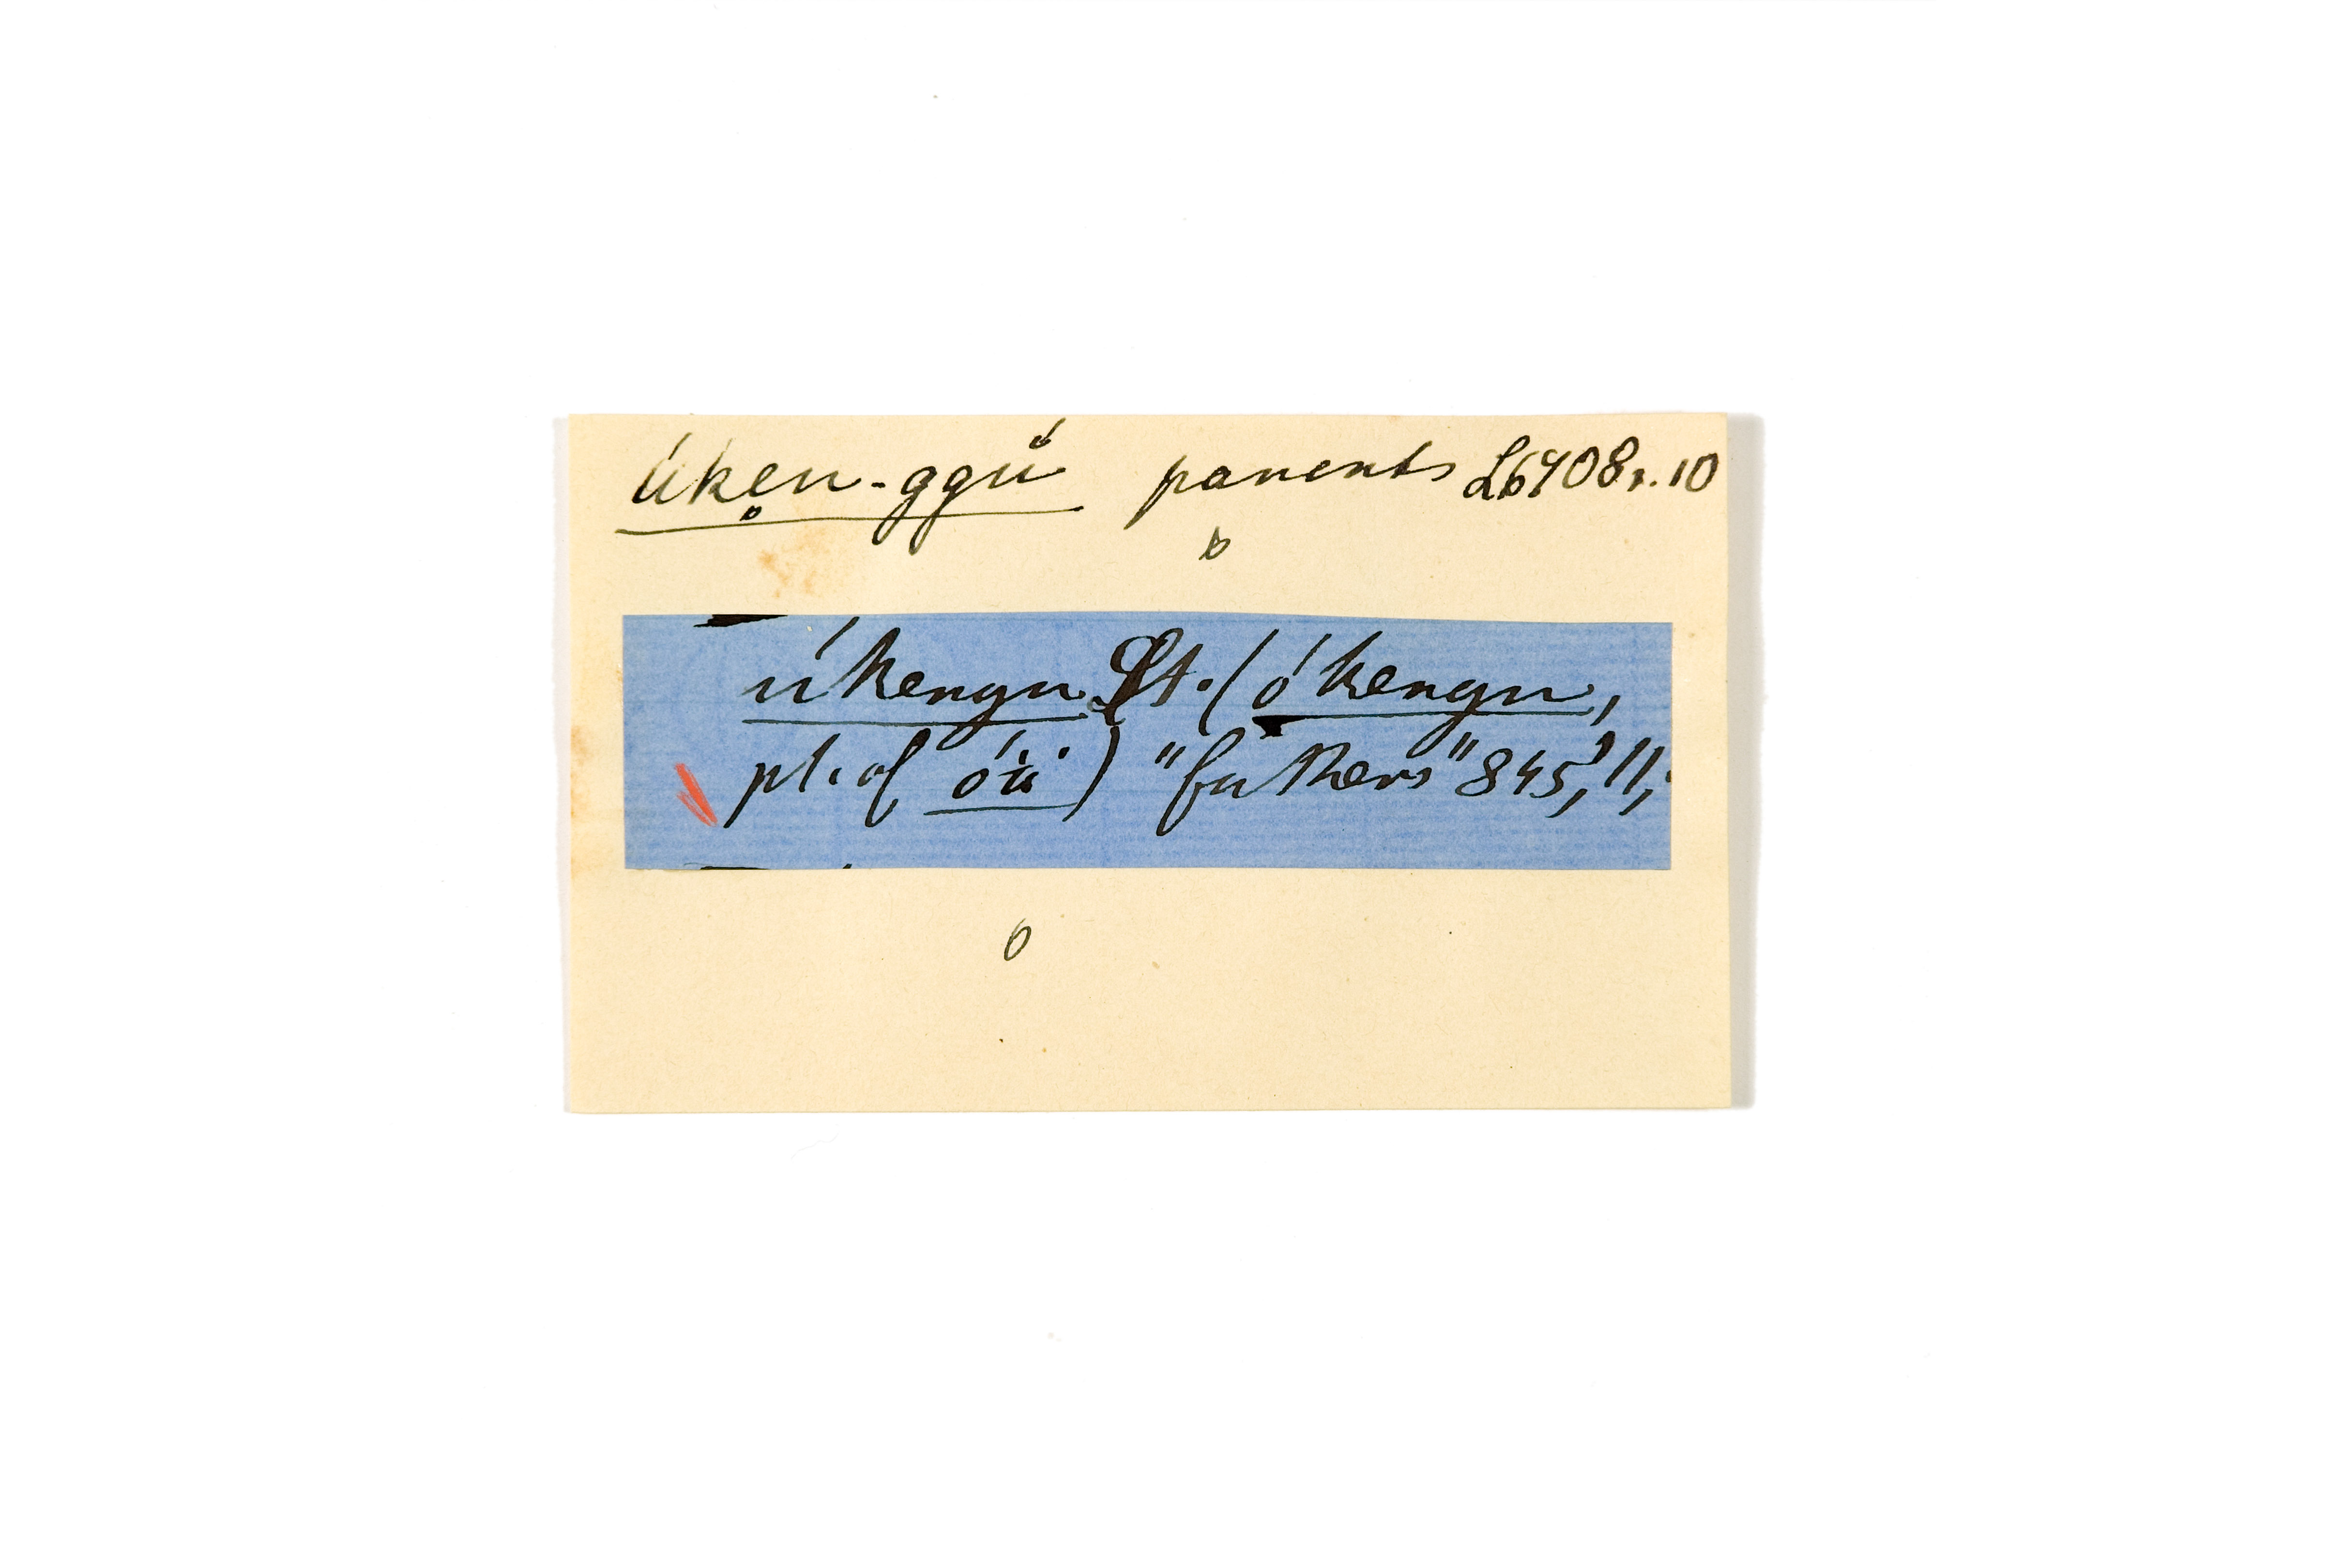 úk̥en-ggú parents L6908r.10
b
úkengu St. (ókengu,
pl. of óü) "fathers" 845, 11;
o